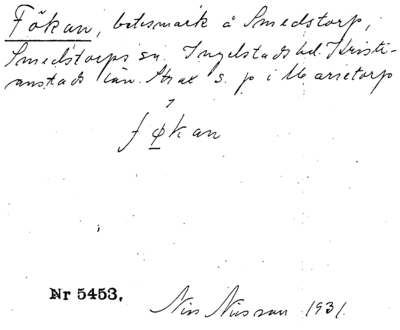 Fökan, betesmark å Smedstorp,
Smedstorps sn. Ingelstads hd. Kristi-
anstads län. Strax s. p i Marietorp
føkan
Nr 5453.
Nils Nilsson 1931.